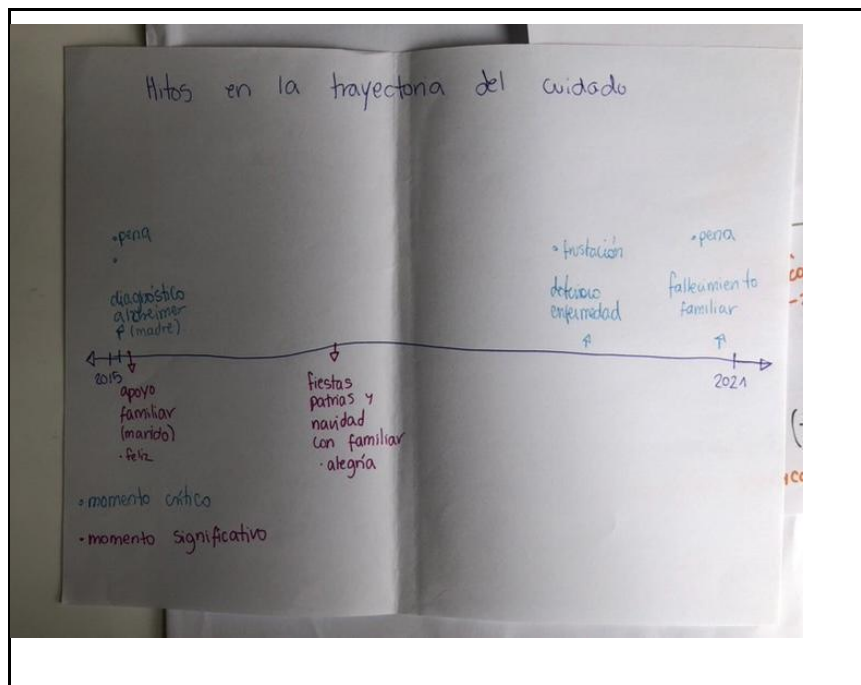 Hitos en la trayectoria del cuidado
• pena
•
diagnóstico
alzheimer
(madre)
• frustación
deterioro
enfermedad
• pena
fallecimiento
familiar
2015
2021
apoyo
familiar
(marido)
• feliz
fiestas
patrias y
navidad
con familiar
• alegría
• momento crítico
• momento significativo